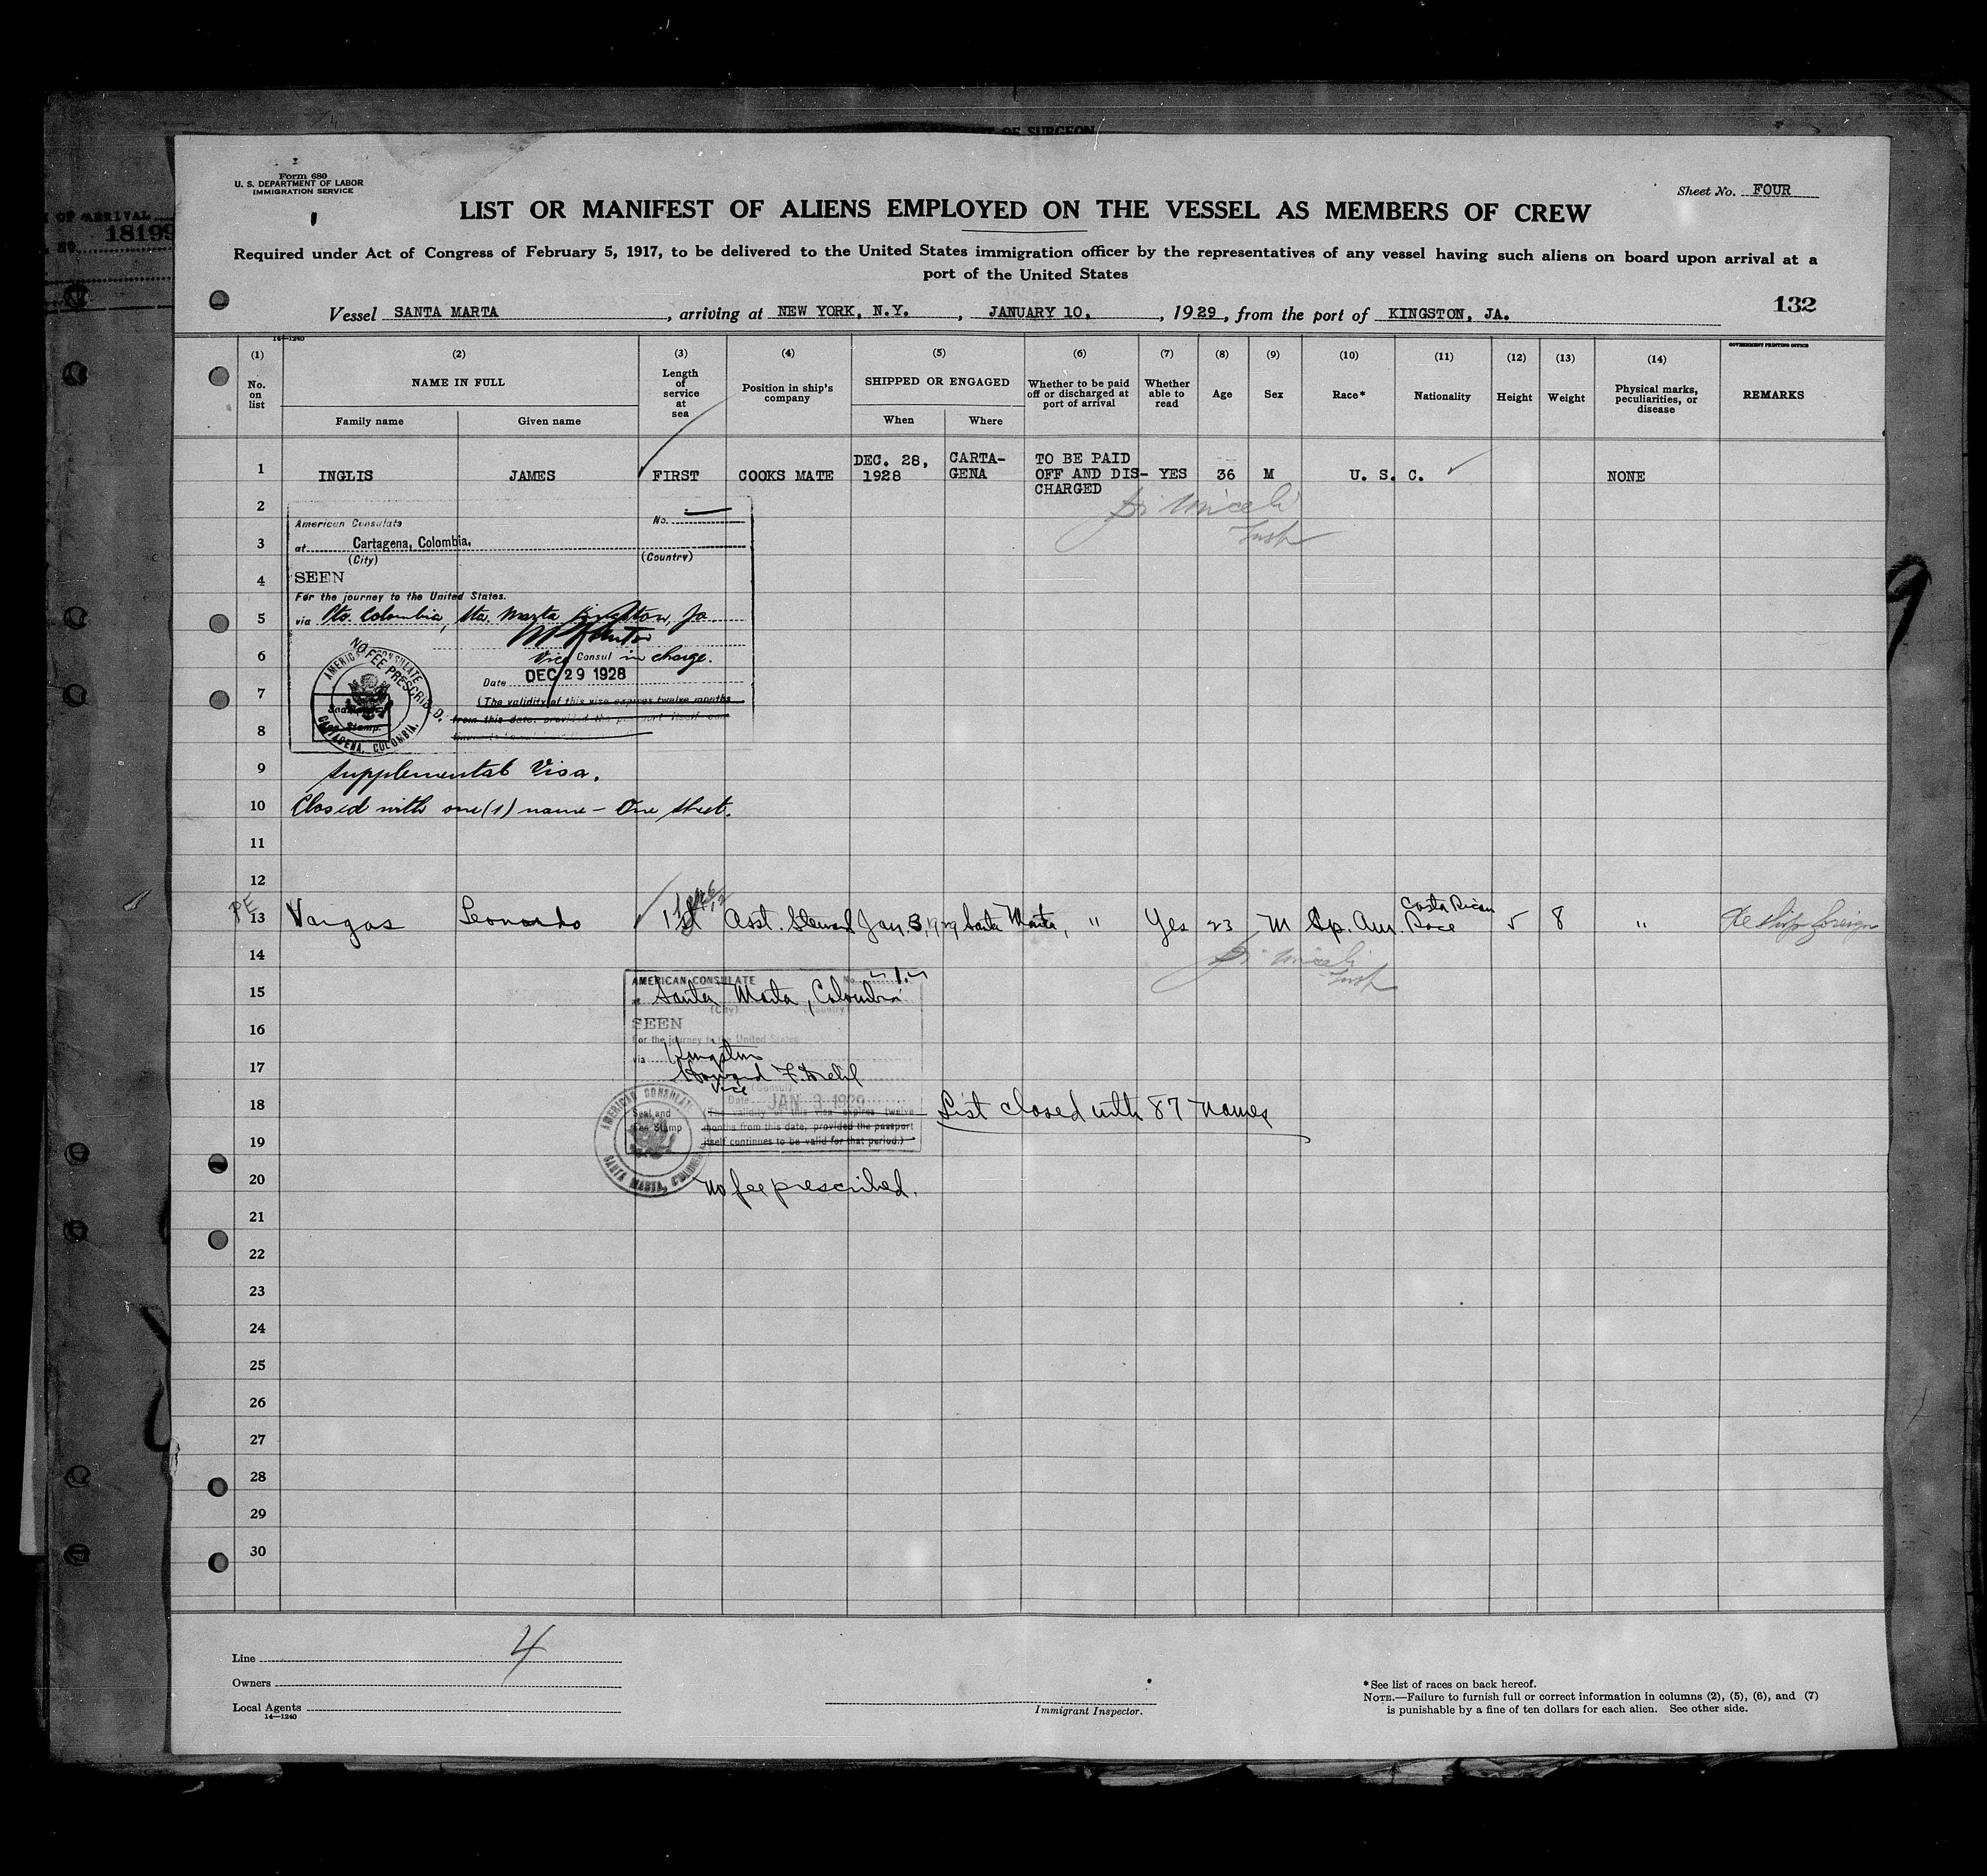 OF SURGEON
OF ARRIVAL
18199
NO.
Form 680
U. S. DEPARTMENT OF LABOR
IMMIGRATION SERVICE
Sheet No. FOUR
LIST OR MANIFEST OF ALIENS EMPLOYED ON THE VESSEL AS MEMBERS OF CREW
Required under Act of Congress of February 5, 1917, to be delivered to the United States immigration officer by the representatives of any vessel having such aliens on board upon arrival at a
port of the United States
132
Vessel SANTA MARTA, arriving at NEW YORK, N.Y., JANUARY 10, 1929, from the port of KINGSTON, JA.
14—1240
GOVERNMENT PRINTING OFFICE
(1) (2) (3) (4) (5) (6) (7) (8) (9) (10) (11) (12) (13) (14)
No. on list
NAME IN FULL
Family name Given name
Length of service at sea
Position in ship's company
SHIPPED OR ENGAGED
When Where
Whether to be paid off or discharged at port of arrival
Whether able to read
Age
Sex
Race*
Nationality
Height
Weight
Physical marks, peculiarities, or disease
REMARKS
1 INGLIS JAMES FIRST COOKS MATE DEC. 28, 1928 CARTA-GENA TO BE PAID OFF AND DIS-CHARGED YES 36 M U. S. C. NONE
2
American Consulate No.
3
at Cartagena, Colombia.
(City) (Country)
4
SEEN
For the journey to the United States.
5
via Pto. Colombia, Sta. Marta Kingston, Ja.
6
Vice Consul in charge.
Date DEC 29 1928
7
(The validity of this visa expires twelve months
from this date, provided the passport itself
8
NO FEE PRESCRIBED.
AMERICAN CONSULATE
CARTAGENA, COLOMBIA.
Stamp.
9
Supplemental Visa.
10
Closed with one (1) name - One sheet.
11
12
PE
13 Vargas Leonardo 1st Asst. Steward Jan. 3, 1929 Santa Marta, " Yes 23 M Sp. Am. Costa Rican Race 5 8 " Re ship foreign
14
AMERICAN CONSULATE No. 1
15
at Santa Marta, Colombia
(City) (Country)
16
SEEN
For the journey to the United States
via Kingston
17
Howard F.
Vice (Consul)
18
Date JAN 3 1929
(The validity of this visa expires twelve
months from this date, provided the passport
itself continues to be valid for that period.)
Seal and
Fee Stamp
AMERICAN CONSULATE
SANTA MARTA, COLOMBIA
List closed with 87 names
19
20
No fee prescribed.
21
22
23
24
25
26
27
28
29
30
4
Line
Owners
Local Agents
14—1240
Immigrant Inspector.
*See list of races on back hereof.
NOTE.—Failure to furnish full or correct information in columns (2), (5), (6), and (7)
is punishable by a fine of ten dollars for each alien. See other side.